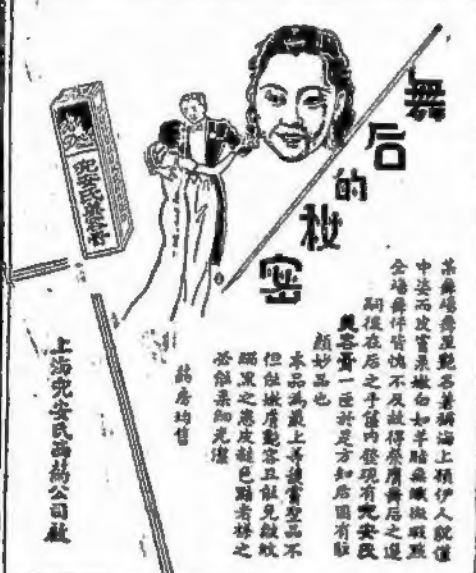 舞后的秘密
某舞場舞星艷名著稱海上顧伊人貌僅
中姿而皮膚柔嫩白如羊脂無纖微瑕點
全場舞伴皆愧不及故得榮膺舞后之選
嗣後在后之手籢內發現有兜安氏
美容膏一匣於是方知后固有駐
顏妙品也
本品為最上美膚膏聖品不
但能嫩膚艷容且能免皺紋
黝黑之患皮糙色黯者搽之
並能柔細光潔
藥房均售
兜安氏美容膏
上海兜安氏西藥公司啟